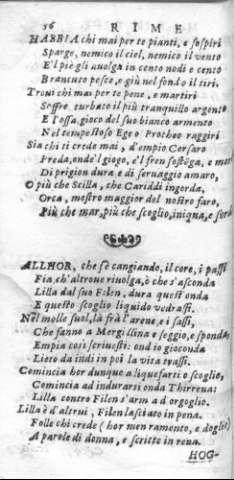 56 RIME
HABBIA chi mai per te pianti, e sospiri
Sparge, nemico il ciel, nemico il vento
E'l piè gli auolga in cento nodi e cento
Brancuto pesce, e giù nel fondo il tiri.
Troui chi mai per te pene, e martiri
Soffre turbato il più tranquillo argento
E l'ossa gioco del suo bianco armento
Nel tempestoso Egeo Protheo raggiri
Sia chi ti crede mai, d'empio Corsaro
Preda, onde'l giogo, e'l fren sostēga, e mar
Di prigion dura e di seruaggio amaro,
O più che Scilla, che Cariddi ingorda,
Orca, mostro maggior del nostro faro,
Più che mar, più che scoglio, iniqua, e sord
ALLHOR, che sē cangiando, il core, i passi
Fia, ch'altroue riuolga, ò che s'asconda
Lilla dal suo Filen, dura quest'onda
E questo scoglio liquido vedrassi.
Nel molle suol, là frà l'arene, e i sassi,
Che fanno a Mergillina e seggio, e sponda,
Empia così scriuesti: ond'io gioconda
Lieto da indi in poi la vita trassi.
Comincia hor dunque a liquefarti o scoglio,
Comincia ad indurarti onda Thirrena:
Lilla contro Filen s'arm a d'orgoglio.
Lilla è d'altrui, Filen lasciato in pena.
Folle chi crede (hor men ramento, e doglio)
A parole di donna, e scritte in rena.
HOG-